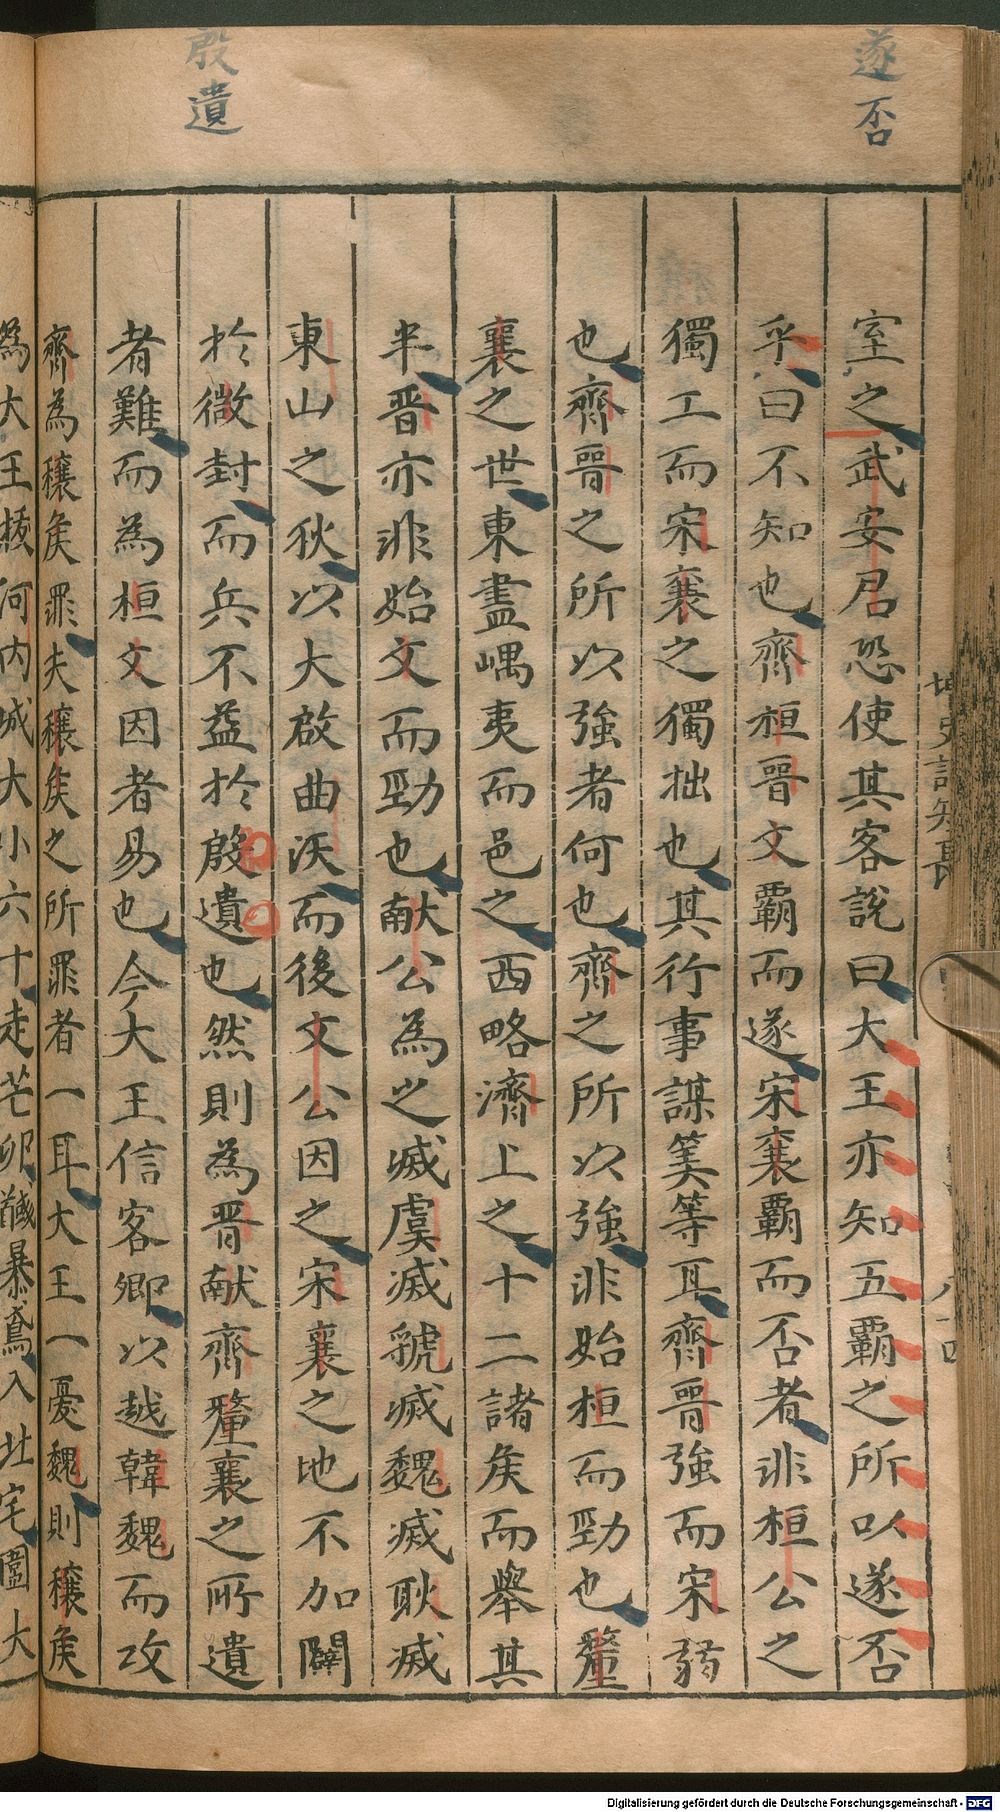 遂否
殷遺
室之武安君恐使其客說曰大王亦知五覇之所以遂否
乎曰不知也齊桓晋文覇而遂宋襄覇而否者非桓公之
獨工而宋襄之獨拙也其行事謀筭等耳齊晋強而宋弱
也齊晋之所以強者何也齊之所以強非始桓而勁也釐
襄之世東盡嵎夷而邑之西略濟上之十二諸矦而舉其
半晋亦非始文而勁也献公為之滅虞滅虢滅魏滅耿滅
東山之狄以大啟曲沃而後文公因之宋襄之地不加闢
於微封而兵不益於殷遺也然則為晋献齊釐襄之所遺
者難而為桓文因者易也今大王信客卿以越韓魏而攻
齊為穰矦罪夫穰矦之所罪者一耳大王一憂魏則穰矦
為大王拔河内城大小六十走芒卯馘暴鳶入北宅圍大
Digitalisierung gefördert durch die Deutsche Forschungsgemeinschaft - DFG